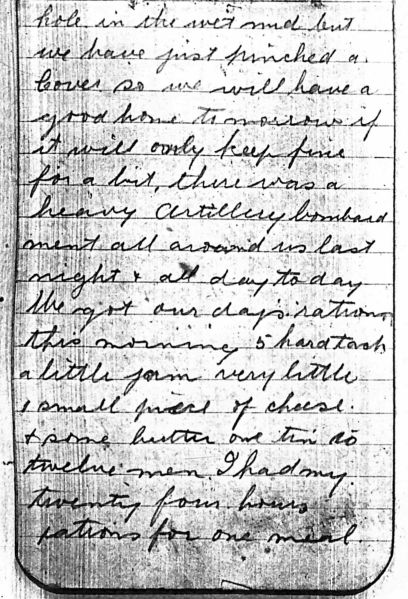 hole in the wet mud but
we have just pinched a
Cover so we will have a
good home tomorrow if
it will only keep fine
for a bit, there was a
heavy Artillery bombard
ment all around us last
night & all day to day
We got our days rations
this morning 5 hardtack
a little jam very little
1 small piece of cheese.
& some butter one tin to
twelve men. I had my
twenty four hours
rations for one meal.